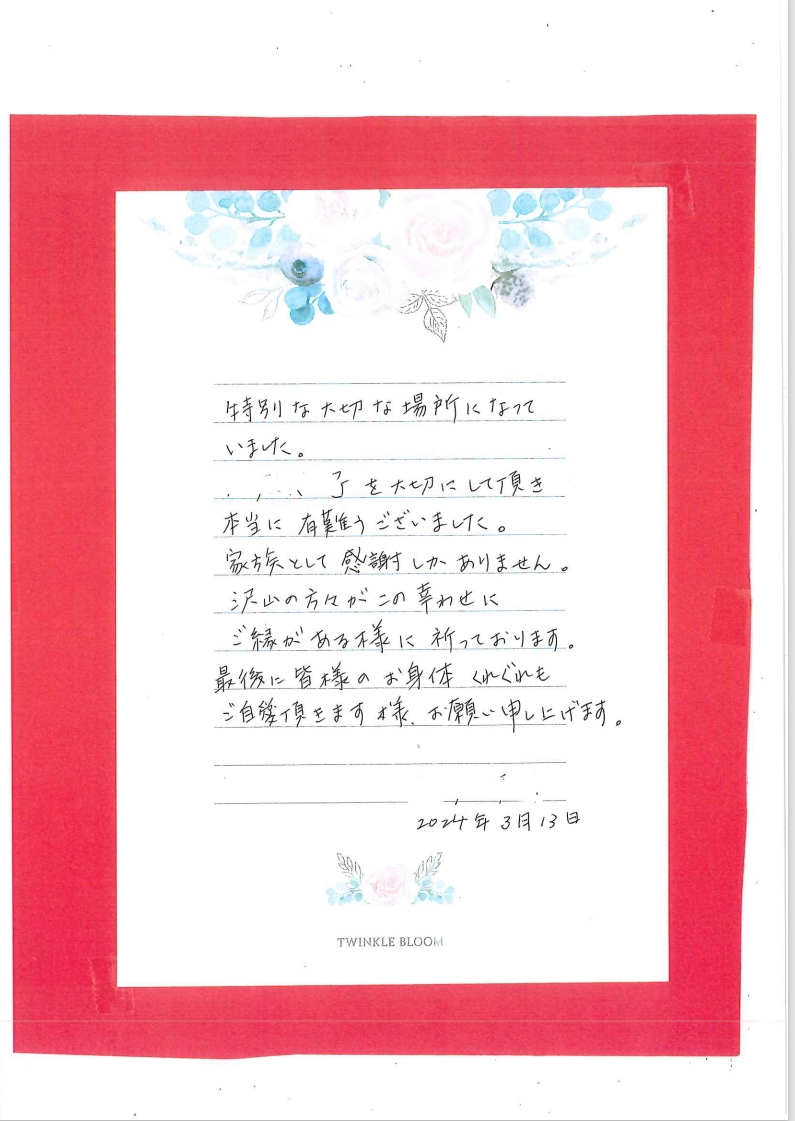 特別な大切な場所になって
いました。
子を大切にして頂き
本当に有難うございました。
家族として感謝しかありません。
沢山の方々がこの幸わせに
ご縁がある様に祈っております。
最後に皆様のお身体くれぐれも
ご自愛頂きます様、お願い申し上げます。
2024年3月13日
TWINKLE BLOOM